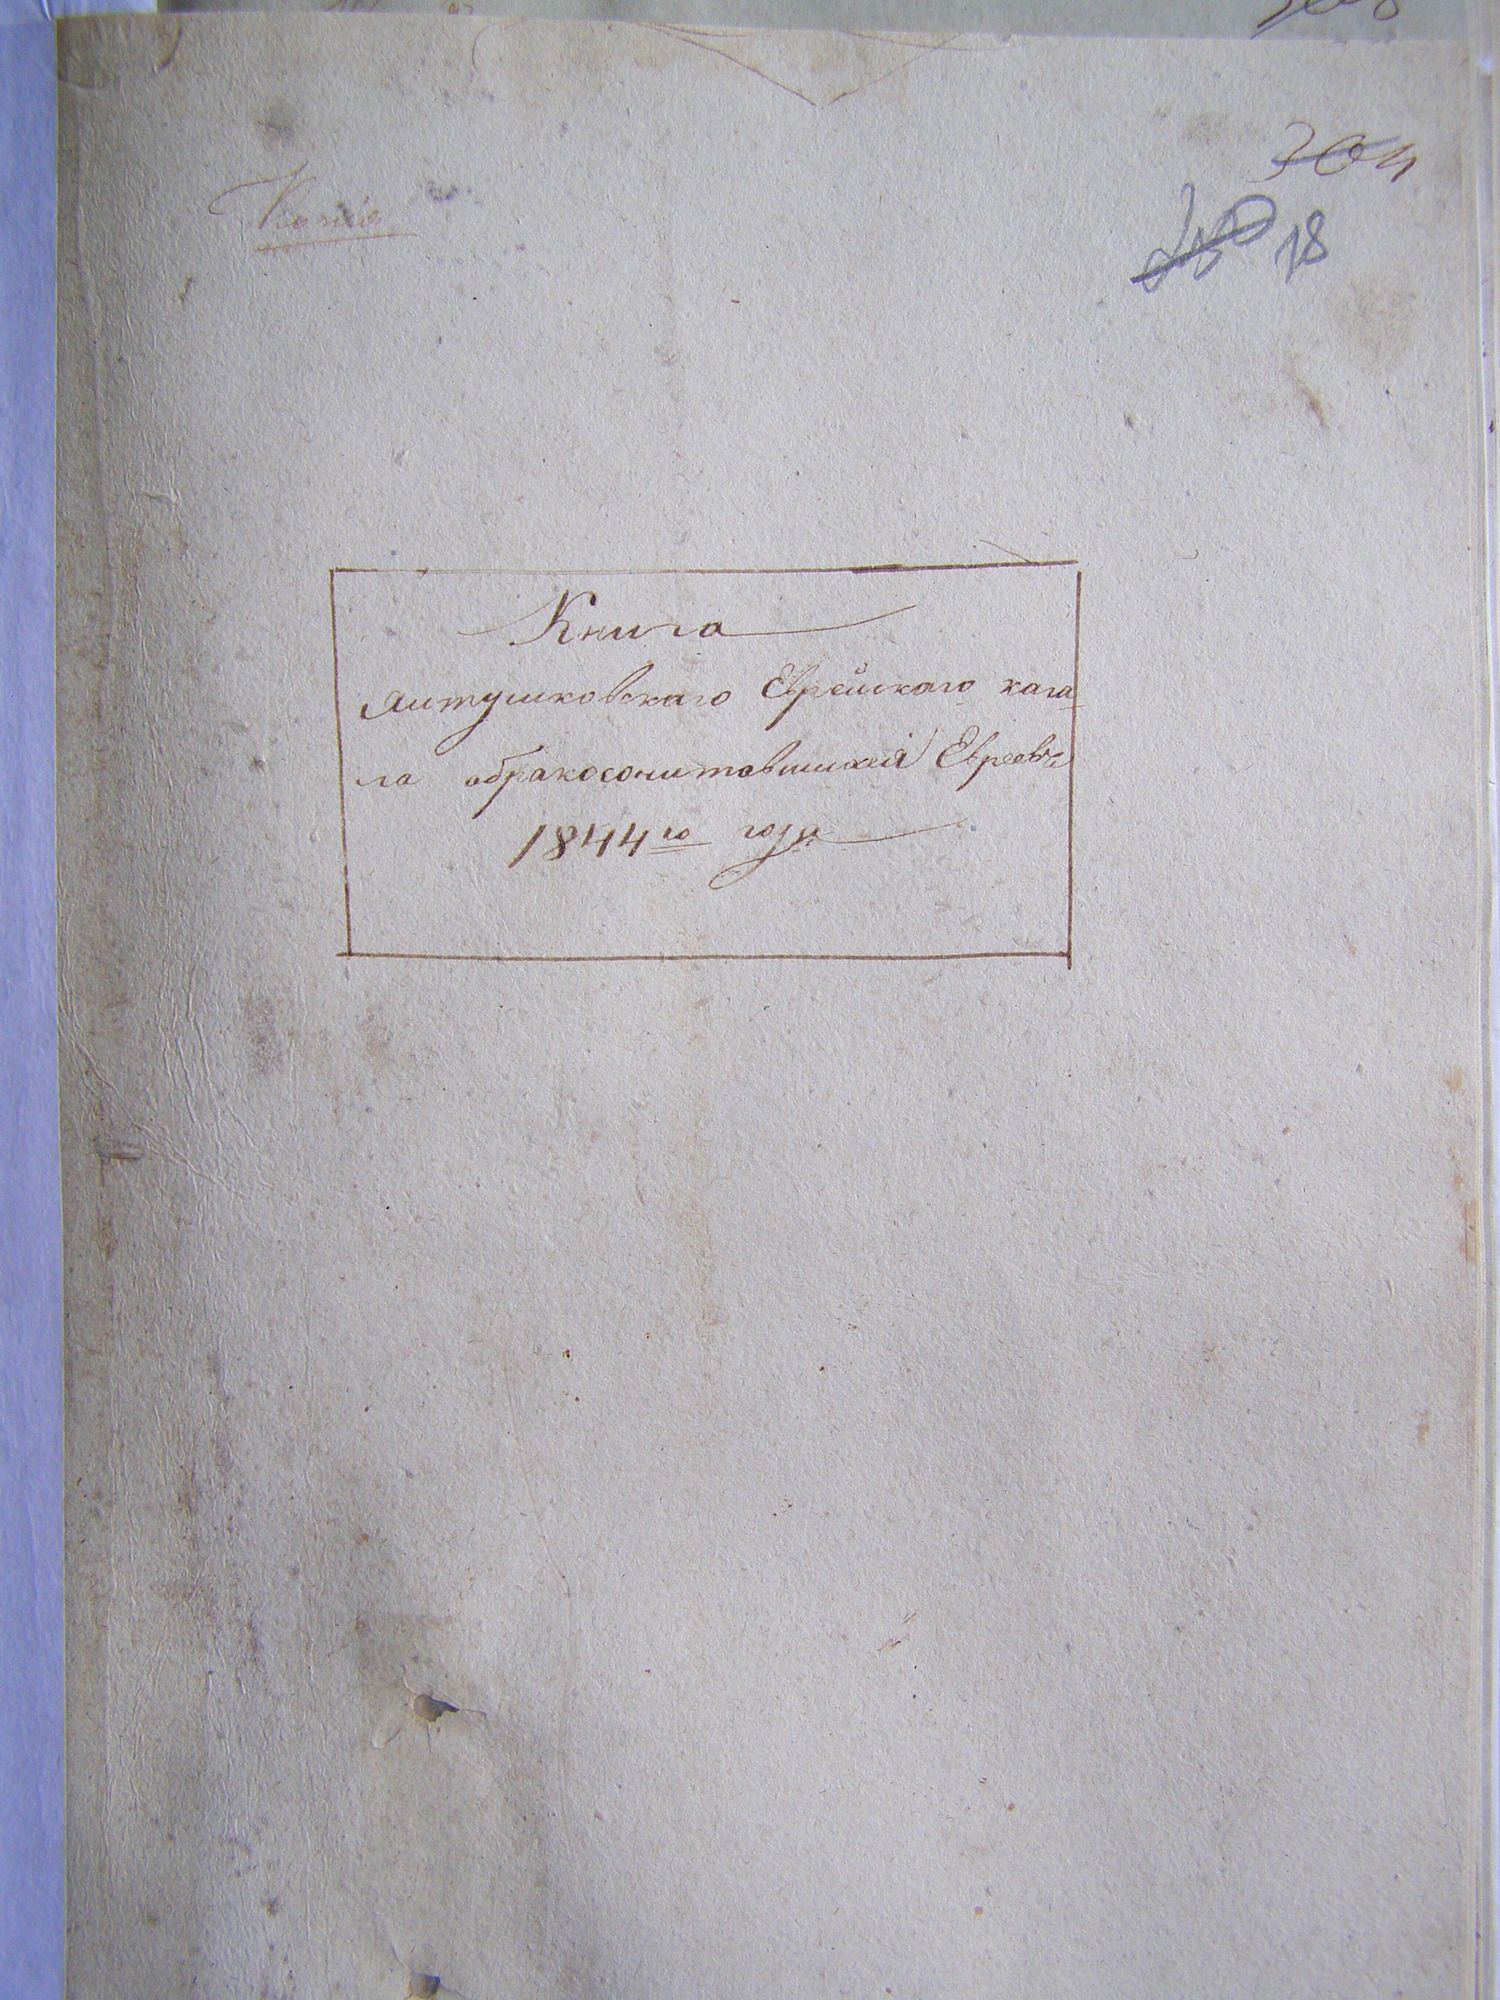 Копія
304
18
Книга
Ялтушковскаго Еврейскаго кага
ла обракосочитавшихся Евреевъ
1844го года